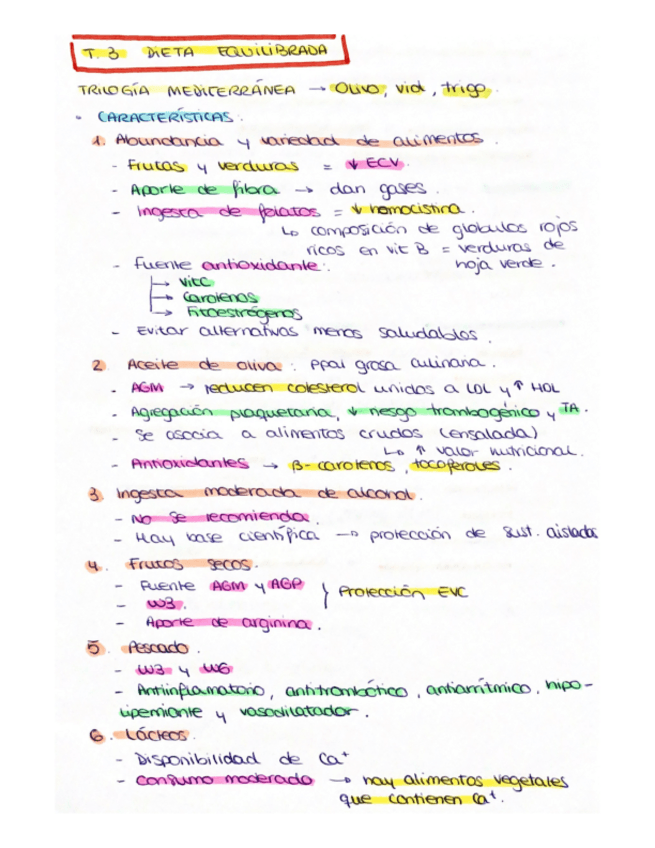 T. 3 DIETA EQUILIBRADA
TRILOGÍA MEDITERRÁNEA → Olivo, vid, trigo.
• CARACTERÍSTICAS:
1. Abundancia y variedad de alimentos.
- Frutas y verduras = ↓ ECV.
- Aporte de fibra → dan gases.
- Ingesta de folatos = ↓ homocistina.
↳ composición de glóbulos rojos
ricos en vit B = verduras de
hoja verde.
- Fuente antioxidante:
→ VitC
→ Carotenos
→ Fitoestrógenos
- Evitar alternativas menos saludables.
2. Aceite de oliva: ppal grasa culinaria.
- AGM → reducen colesterol unidos a LDL y ↑ HDL
- Agregación plaquetaria, ↓ riesgo trombogénico y TA.
- Se asocia a alimentos crudos (ensalada)
↳ ↑ valor nutricional.
- Antioxidantes → β-carotenos, tocoferoles.
3. Ingesta moderada de alcohol.
- No se recomienda.
- Hay base científica → protección de sust. aisladas
4. Frutos secos.
- Fuente AGM y AGP } Protección EVC
- W3.
- Aporte de arginina.
5. Pescado.
- W3 y W6
- Antiinflamatorio, antitrombótico, antiarrítmico, hipo-
lipemiante y vasodilatador.
6. Lácteos.
- Disponibilidad de Ca⁺
- Consumo moderado → hay alimentos vegetales
que contienen Ca⁺.